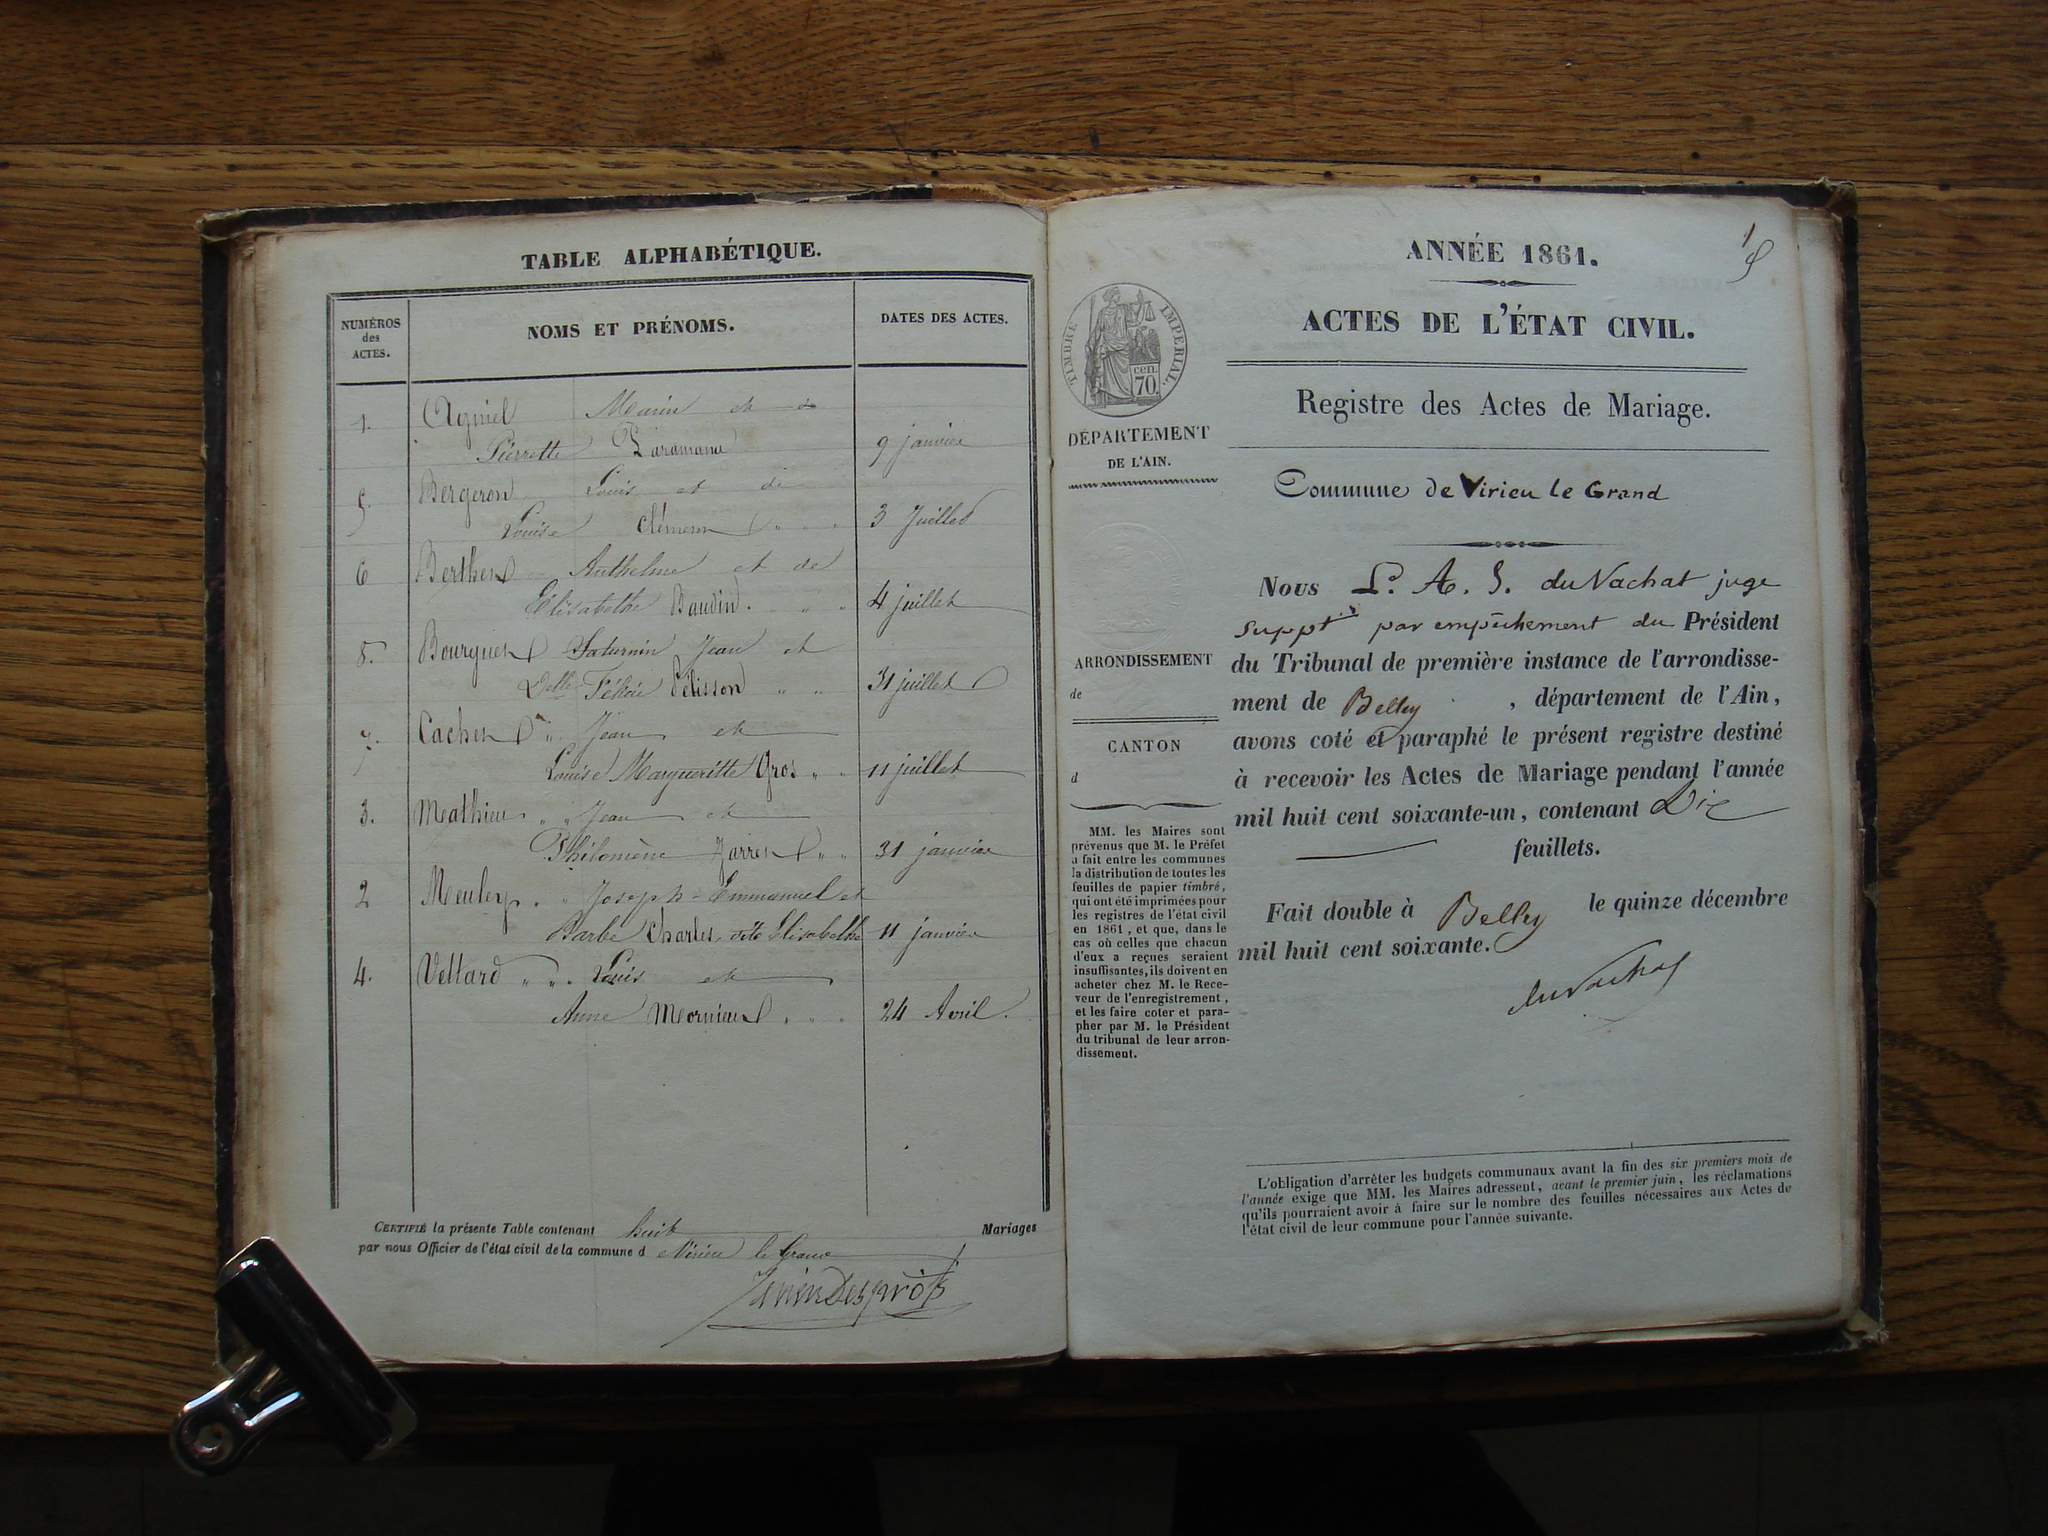 TABLE ALPHABÉTIQUE.
NUMÉROS
des
ACTES.
NOMS ET PRÉNOMS.
DATES DES ACTES.
1. Agniel Marin et de
Pierrette 9 janvier
5. Bergeron Louis et de
Louise 3 Juillet
6 Berthet Anthelme et de
Elisabethe Baudin. 4 juillet
8. Bourguet Saturnin Jean et
Delle Pélisson 31 juillet
7. Cachet Jean et
Louise Margueritte Gros 11 juillet
3. Mathieu Jean et
Philomène 31 janvier
2 Meuley Joseph-Emmanuel et
Barbe Charles, dite Elisabethe 11 janvier
4. Vellard Louis et
Anne 24 Avril.
CERTIFIÉ la présente Table contenant huit Mariages
par nous Officier de l'état civil de la commune d Virieu le Grand
ANNÉE 1861.
ACTES DE L'ÉTAT CIVIL.
TIMBRE IMPÉRIAL.
cen.
70
Registre des Actes de Mariage.
DÉPARTEMENT
DE L'AIN.
Commune de Virieu le Grand
Nous L. A. S. du Vachat juge
suppt par empêchement du Président
du Tribunal de première instance de l'arrondisse-
ment de Belley , département de l'Ain,
avons coté et paraphé le présent registre destiné
à recevoir les Actes de Mariage pendant l'année
mil huit cent soixante-un, contenant Dix
feuillets.
Fait double à Belley le quinze décembre
mil huit cent soixante.
duVachat
ARRONDISSEMENT
de
CANTON
d
MM. les Maires sont
prévenus que M. le Préfet
a fait entre les communes
la distribution de toutes les
feuilles de papier timbré,
qui ont été imprimées pour
les registres de l'état civil
en 1861, et que, dans le
cas où celles que chacun
d'eux a reçues seraient
insuffisantes, ils doivent en
acheter chez M. le Rece-
veur de l'enregistrement,
et les faire coter et para-
pher par M. le Président
du tribunal de leur arron-
dissement.
L'obligation d'arrêter les budgets communaux avant la fin des six premiers mois de
l'année exige que MM. les Maires adressent, avant le premier juin, les réclamations
qu'ils pourraient avoir à faire sur le nombre des feuilles nécessaires aux Actes de
l'état civil de leur commune pour l'année suivante.